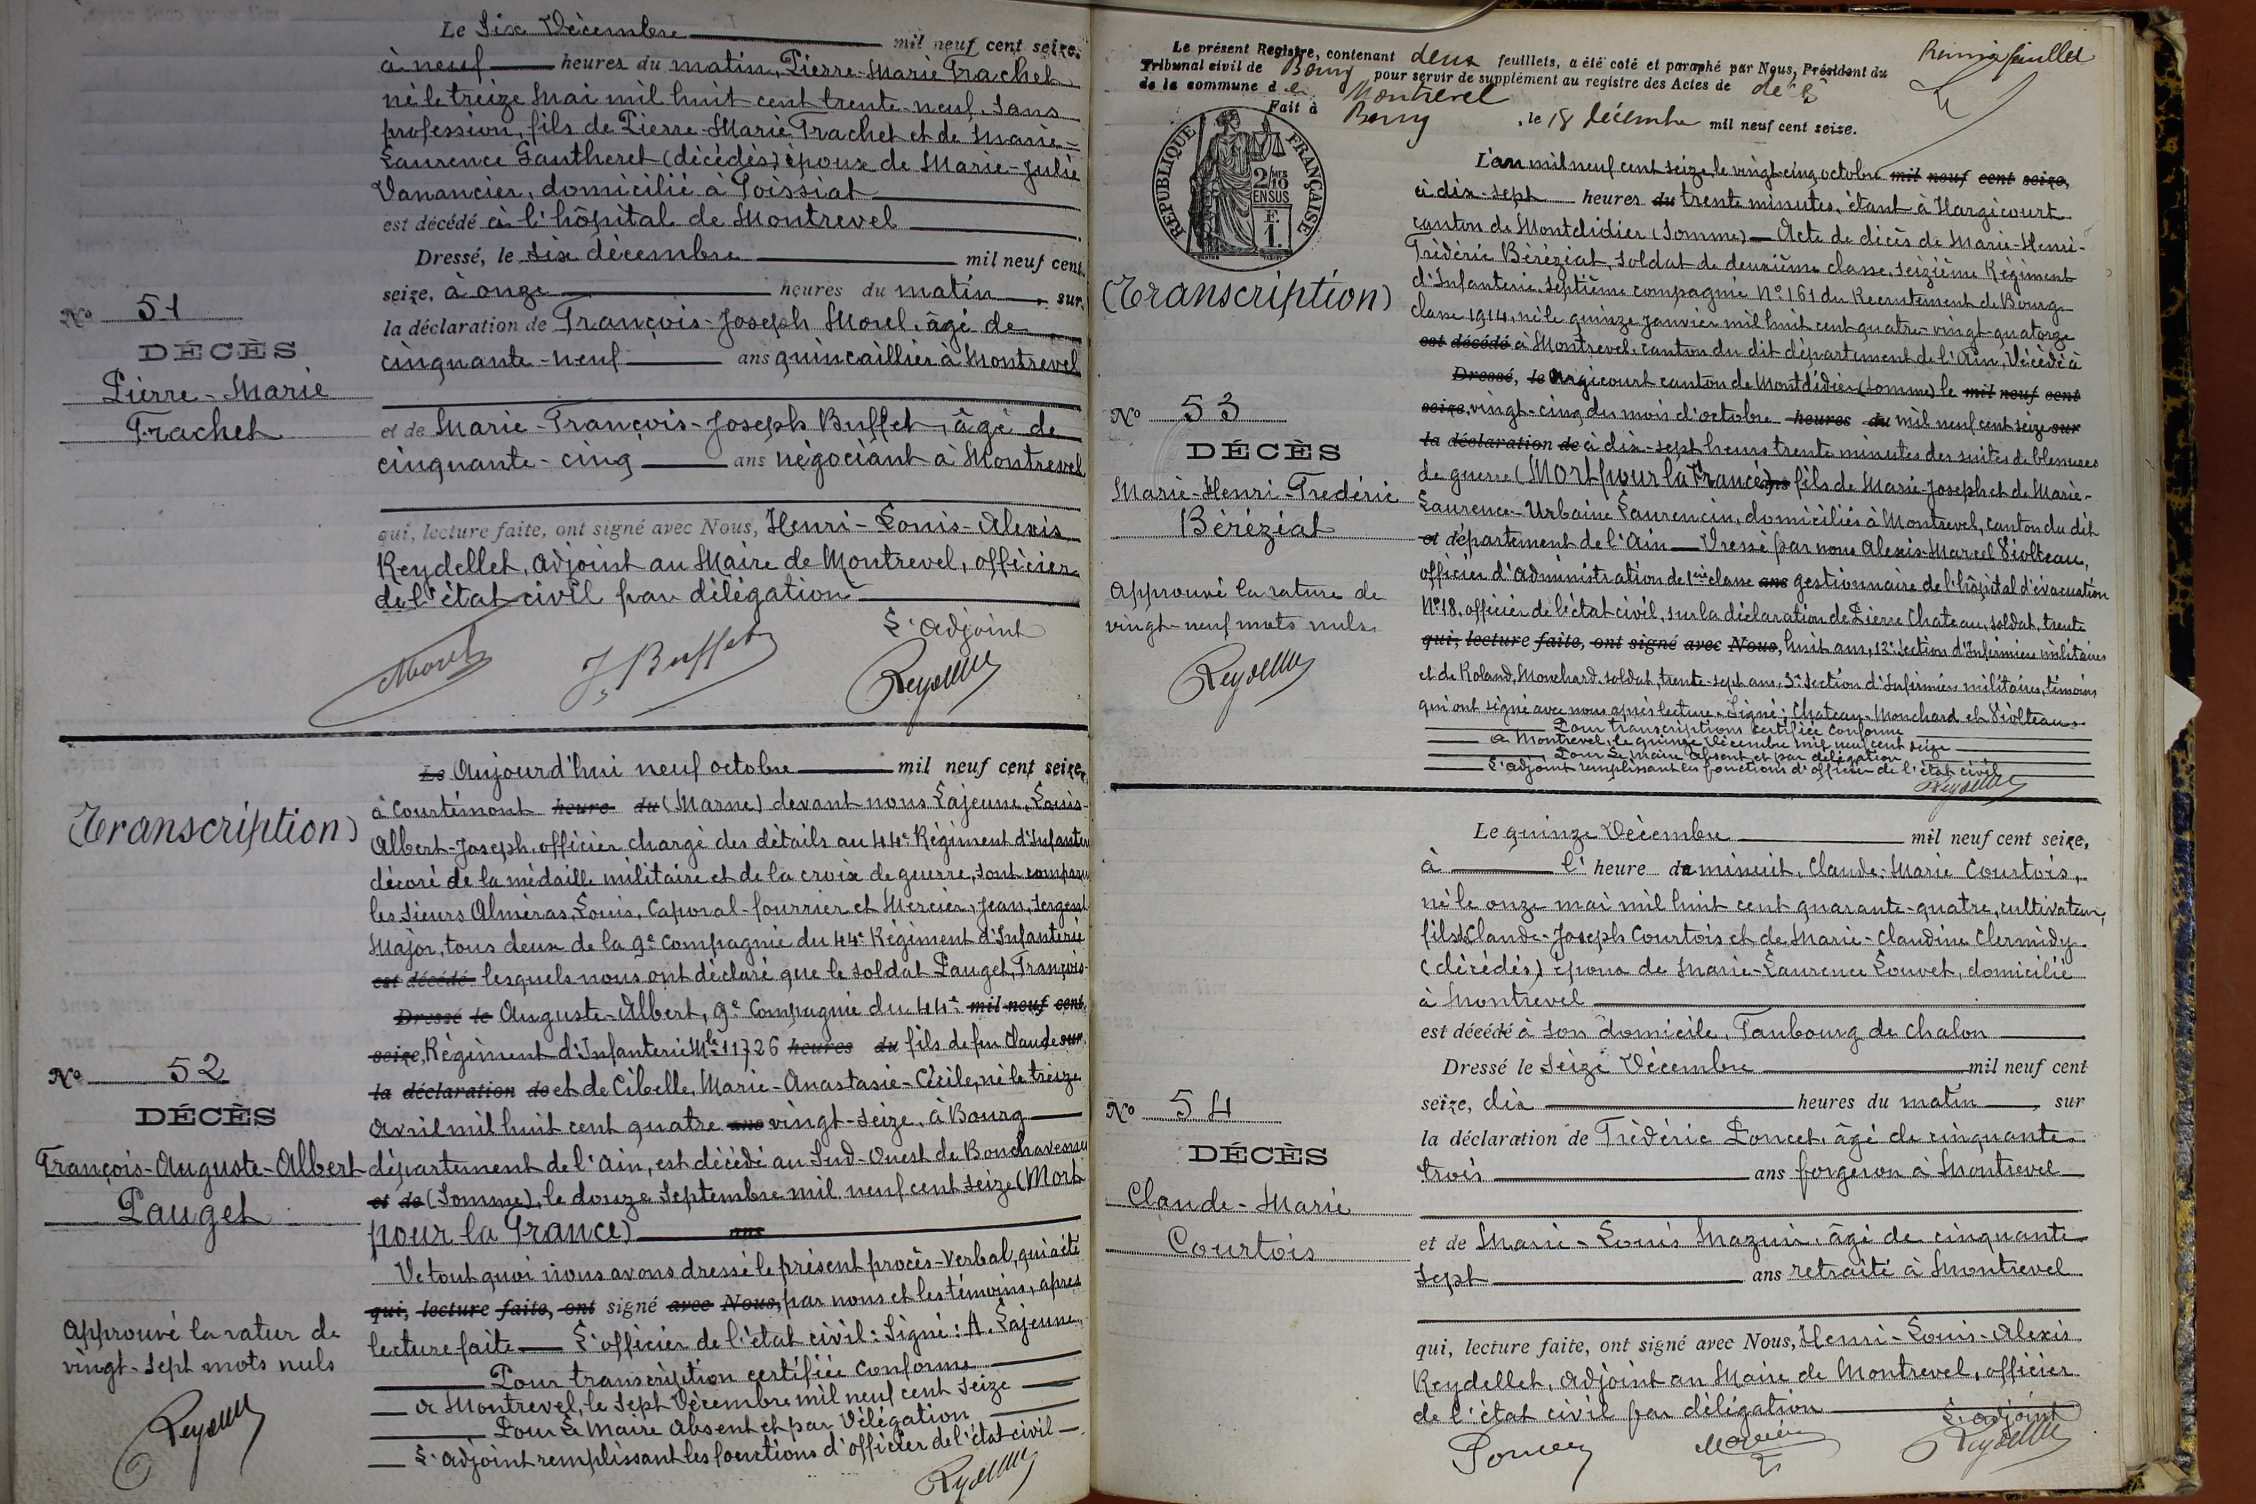 Le Six Décembre mil neuf cent seize,
à neuf heures du matin, Pierre-Marie Trachet
né le treize Mai mil huit cent trente-neuf, sans
profession, fils de Pierre-Marie Trachet et de Marie-
Laurence Gautheret (décédés) époux de Marie-Julie
Vanancier, domicilié à Foissiat
est décédé à l'hôpital de Montrevel
Dressé, le six décembre mil neuf cent
seize, à onze heures du matin, sur
la déclaration de François-Joseph Morel, âgé de
cinquante-neuf ans quincaillier à Montrevel
et de Marie-François-Joseph Buffet, âgé de
cinquante-cinq ans négociant à Montrevel
qui, lecture faite, ont signé avec Nous, Henri-Louis-Alexis
Reydellet, Adjoint au Maire de Montrevel, officier
de l'état civil par délégation
L'Adjoint
Morel J. Buffet Reydellet
N° 51
DÉCÈS
Pierre-Marie
Trachet
Le Aujourd'hui neuf octobre mil neuf cent seize,
à Courtémont heure du (Marne) devant nous Lajeune, Louis-
Albert-Joseph, officier chargé des détails au 44e Régiment d'Infanterie
décoré de la médaille militaire et de la croix de guerre, sont comparu
les sieurs Alméras, Louis, Caporal-fourrier et Mercier, Jean, Sergent
Major, tous deux de la 9e Compagnie du 44e Régiment d'Infanterie
est décédé lesquels nous ont déclaré que le soldat Pauget, François-
Dressé le Auguste-Albert, 9e Compagnie du 44e mil neuf cent
seize, Régiment d'Infanterie Mle 11726 heures du fils de feu Claude sur
la déclaration de et de Cibelle, Marie-Anastasie-Cécile, né le treize
Avril mil huit cent quatre ans vingt-seize, à Bourg
département de l'Ain, est décédé au Sud-Ouest de Bouchavesnes
et de (Somme), le douze Septembre mil neuf cent seize (Mort
pour la France) ans
De tout quoi nous avons dressé le présent procès-verbal, qui a été
qui, lecture faite, ont signé avec Nous, par nous et les témoins, après
lecture faite L'officier de l'état civil : Signé : A. Lajeune.
Pour transcription certifiée conforme
A Montrevel, le sept Décembre mil neuf cent seize
Pour Le Maire absent et par Délégation
L'Adjoint remplissant les fonctions d'officier de l'état civil
Reydellet
(Transcription)
N° 52
DÉCÈS
François-Auguste-Albert
Pauget
Approuvé la ratur de
vingt-sept mots nuls
Reydellet
Le présent Registre, contenant deux feuillets, a été coté et paraphé par Nous, Président du
Tribunal civil de Bourg pour servir de supplément au registre des Actes de
de la commune d e Montrevel
Fait à Bourg, le 18 décembre mil neuf cent seize.
RÉPUBLIQUE FRANÇAISE
2/10 MES
EN SUS
F.
1.
L'an mil neuf cent seize, le vingt-cinq octobre mil neuf cent seize,
à dix-sept heures du trente minutes, étant à Hargicourt
canton de Montdidier (Somme) Acte de décès de Marie-Henri-
Frédéric Béréziat, soldat de deuxième classe, seizième Régiment
d'Infanterie, septième compagnie N° 161 du Recrutement de Bourg
classe 1914, né le quinze janvier mil huit cent quatre-vingt-quatorze
est décédé à Montrevel, canton du dit département de l'Ain, Décédé à
Dressé, le Argicourt canton de Montdidier (Somme) le mil neuf cent
seize, vingt-cinq du mois d'octobre heures du mil neuf cent seize sur
la déclaration de à dix-sept heures trente minutes des suites de blessures
de guerre (Mort pour la France) ans fils de Marie-Joseph et de Marie-
Laurence-Urbaine Laurencin, domiciliés à Montrevel, canton du dit
et département de l'Ain Dressé par nous Alexis-Marcel Violteau,
officier d'Administration de 1ère classe ans gestionnaire de l'hôpital d'évacuation
N° 18, officier de l'état civil, sur la déclaration de Pierre Chateau, soldat, trente
qui, lecture faite, ont signé avec Nous, huit ans, 12e Section d'Infirmiers militaires
et de Roland, Monchard, soldat, trente-sept ans, 3e Section d'Infirmiers militaires, témoins
qui ont signé avec nous après lecture. Signé : Chateau, Monchard et Violteau.
Pour transcription certifiée conforme
A Montrevel, le quinze Décembre mil neuf cent seize
Pour Le Maire absent et par délégation
L'Adjoint remplissant les fonctions d'officier de l'état civil
Reydellet
(Transcription)
N° 53
DÉCÈS
Marie-Henri-Fredéric
Béréziat
Approuvé la rature de
vingt-neuf mots nuls
Reydellet
Le quinze Décembre mil neuf cent seize,
à l'heure de minuit, Claude-Marie Courtois,
né le onze mai mil huit cent quarante-quatre, cultivateur,
fils de Claude-Joseph Courtois et de Marie-Claudine Clermidy
(décédés) époux de Marie-Laurence Louvet, domicilié
à Montrevel
est décédé à son domicile, Faubourg de Chalon
Dressé le Seize Décembre mil neuf cent
seize, dix heures du matin, sur
la déclaration de Frédéric Poncet, âgé de cinquante
trois ans forgeron à Montrevel
et de Marie-Louis Mazuir, âgé de cinquante
sept ans retraité à Montrevel
qui, lecture faite, ont signé avec Nous, Henri-Louis-Alexis
Reydellet, Adjoint au Maire de Montrevel, officier
de l'état civil par délégation
L'adjoint
Poncet Mazuir Reydellet
N° 54
DÉCÈS
Claude-Marie
Courtois